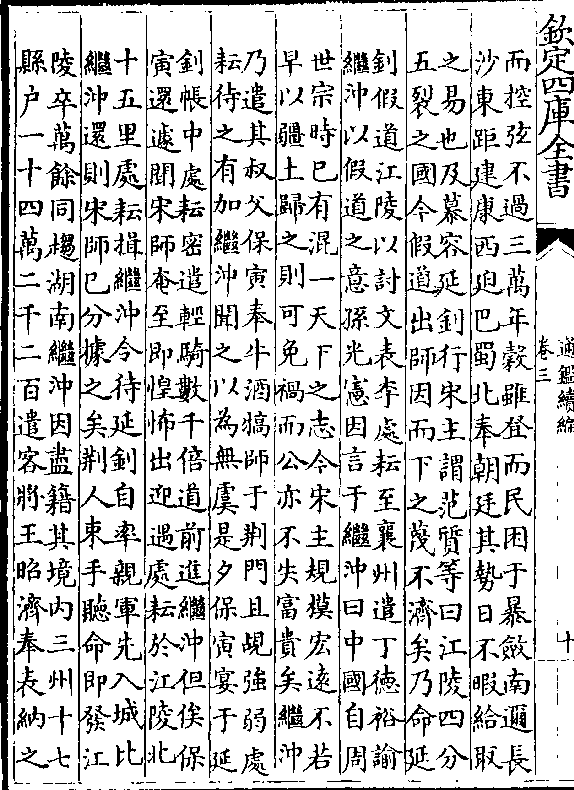 欽定四庫全書
通鑑續編
卷三
十
而控弦不過三萬年穀雖登而民困于暴斂南邇長
沙東距建康西廹巴蜀北奉朝廷其勢日不暇給取
之易也及慕容延釗行宋主謂范質等曰江陵四分
五裂之國今假道出師因而下之蔑不濟矣乃命延
釗假道江陵以討文表李處耘至襄州遣丁德裕諭
繼沖以假道之意孫光憲因言于繼沖曰中國自周
世宗時已有混一天下之志今宋主規摸宏遠不若
早以疆土歸之則可免禍而公亦不失富貴矣繼沖
乃遣其叔父保寅奉牛酒犒師于荆門且覘強弱處
耘待之有加繼沖聞之以為無虞是夕保寅宴于延
釗帳中處耘密遣輕騎數千倍道前進繼沖但俟保
寅還遽聞宋師奄至即惶怖出迎遇處耘於江陵北
十五里處耘揖繼沖令待延釗自率親軍先入城比
繼沖還則宋師已分據之矣荆人束手聽命即發江
陵卒萬餘同趨湖南繼沖因盡籍其境内三州十七
縣户一十四萬二千二百遣客將王昭濟奉表納之